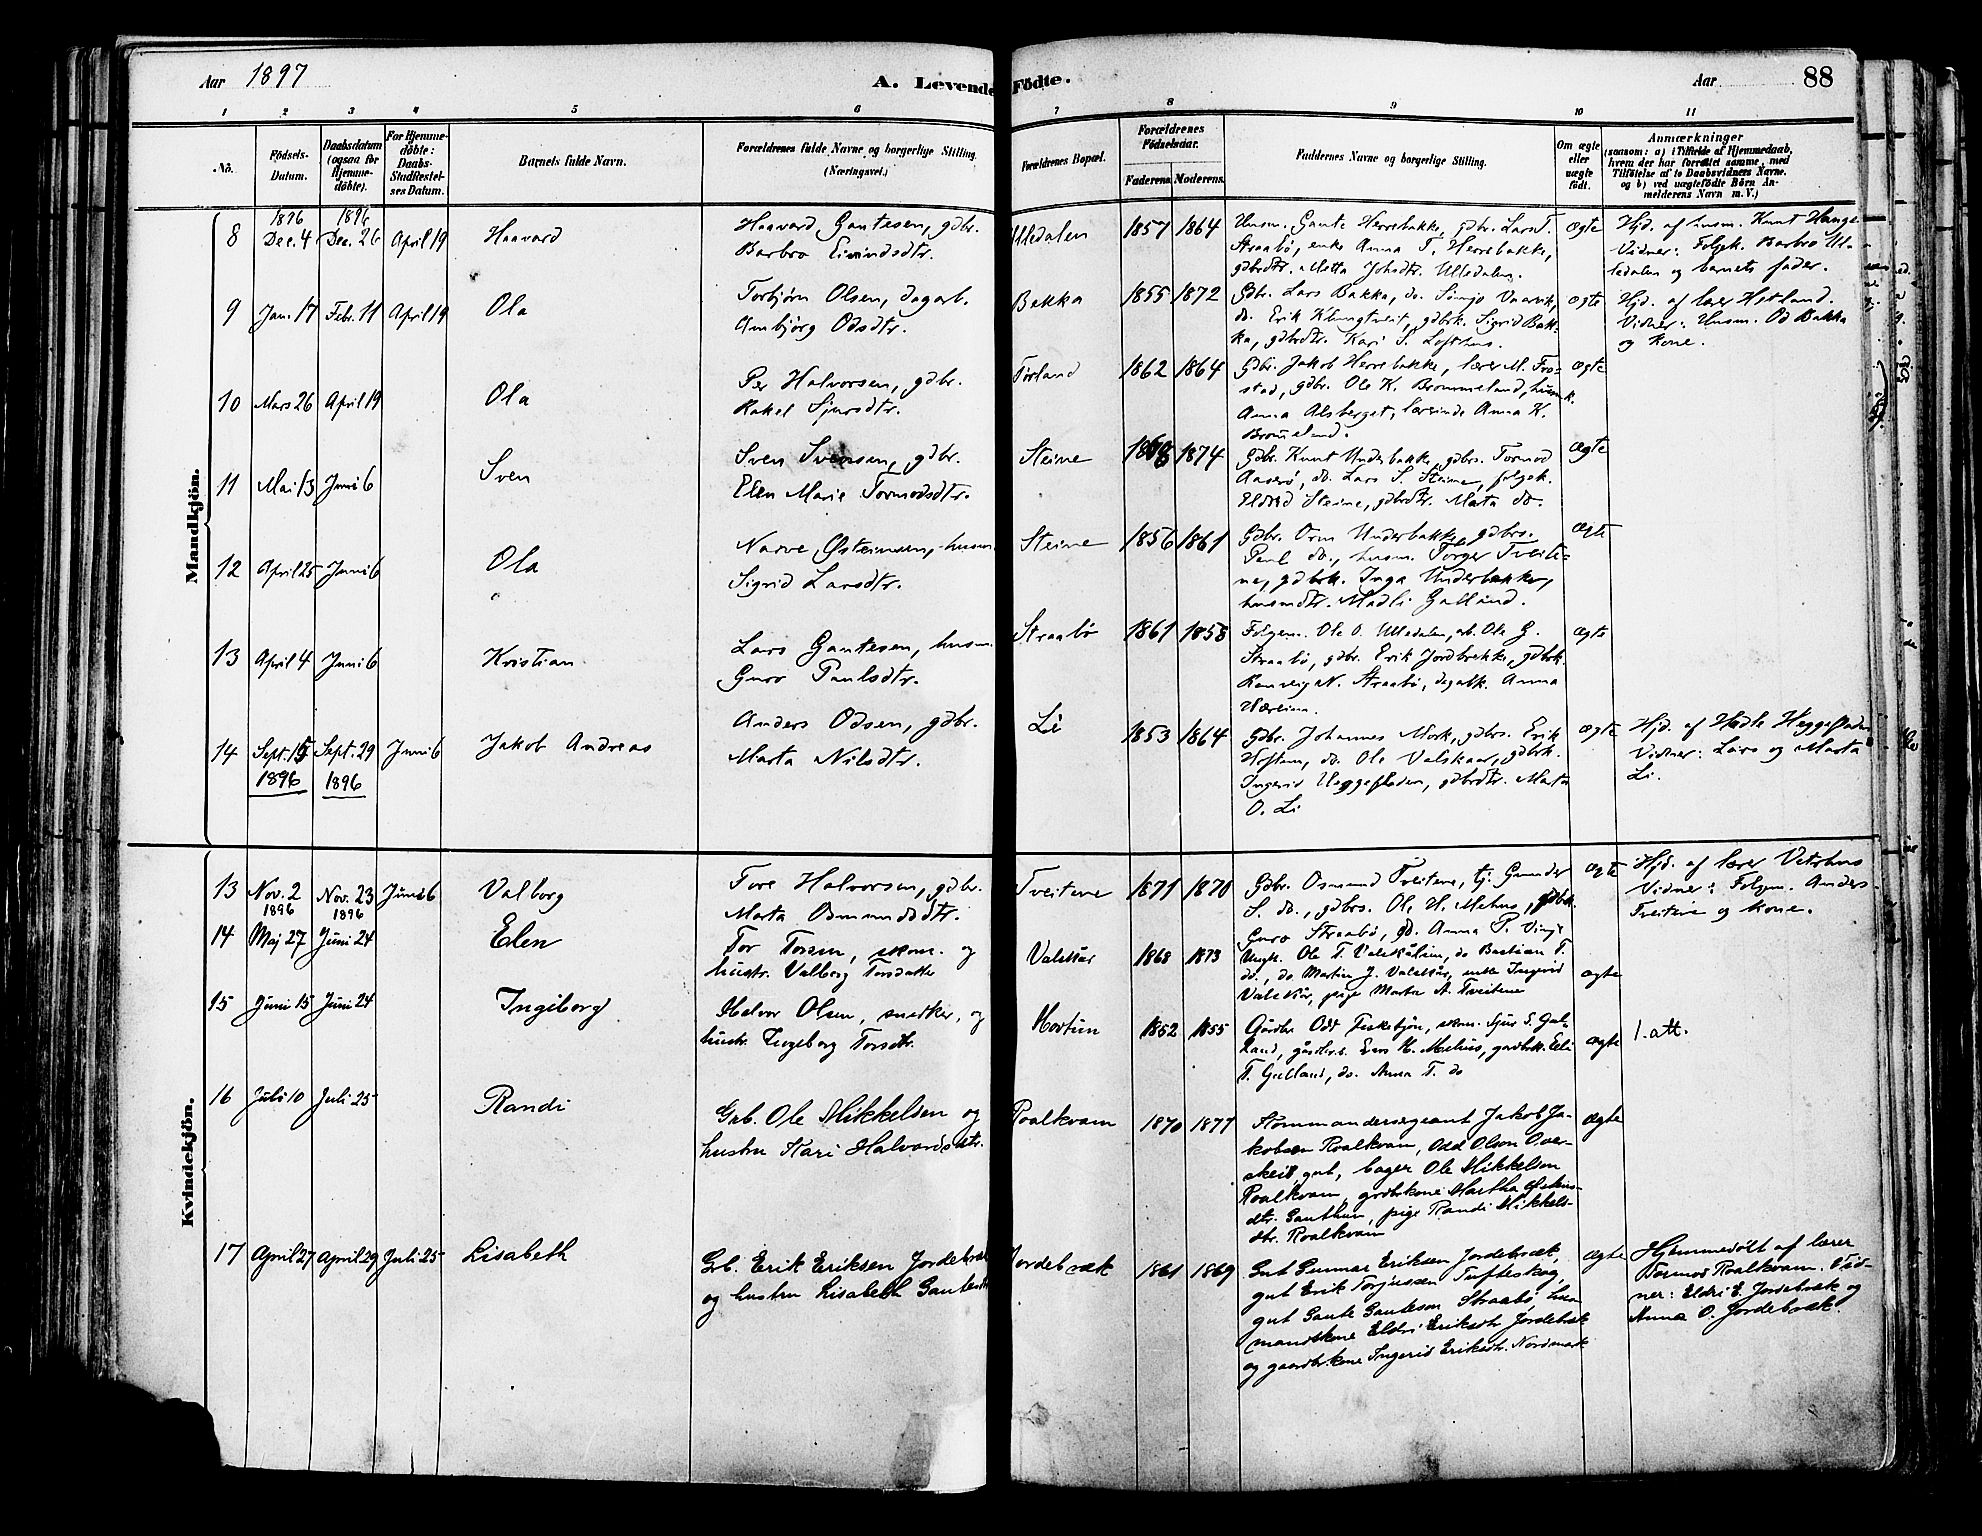 Aar 1897
A. Levende Födte.
Aar
88
1 2 3 4 5 6 7 8 9 10 11
No.
Födsels-
Datum.
Daabsdatum
(ogsaa for
Hjemme-
döbte).
For Hjemme-
döbte:
Daabs-
Stadfæstel-
ses Datum.
Barnets fulde Navn.
Forældrenes fulde Navne og borgerlige Stilling.
(Næringsvei.)
Forældrenes Bopæl.
Forældrenes
Födselsaar.
Faderens. Moderens.
Faddernes Navne og borgerlige Stilling.
Om ægte
eller
uægte
födt.
Anmærkninger
(saasom: a) i Tilfælde af Hjemmedaab,
hvem der har forrettet samme, med
Tilföielse af to Daabsvidners Navne.
og b) ved uægtefödte Börn An-
melderens Navn m. V.)
Mandkjön.
8 1896 Dec. 4 1896 Dec. 26 April 19 Haavard
Haavard Gautesen, gdbr.
Barbro Eivindsdtr.
Ulledalen 1857 1864
Husm. Gaute Herrebakke, gdbr. Lars T.
Straabø, enke Anna T. Herrebakke,
gdbrdtr. Metta Johsdtr. Ulledalen.
Ægte
Hjd. af husm. Knut Hauge
Vidner: Folgek. Barbro Ul-
ledalen og barnets fader.
9 Jan. 17 Febr. 11 April 19 Ola
Torbjørn Olsen, dagarb.
Ambjørg Odsdtr.
Bakka 1855 1872
Gdbr. Lars Bakka, do. Vaarvik,
do. Erik Klungtveit, gdbrk. Sigrid Bak-
ka, gdbrdtr. Kari S. Lofthus.
Ægte
Hjd. af lærer Hetland.
Vidner: Husm. Od Bakka
og kone.
10 Mars 26 April 19 Ola
Per Halvorsen, gdbr.
Rakel Sjursdtr.
Førland 1862 1864
Gdbr. Jakob Herrebakke, lærer M. Fro-
stad, gdbr. Ole K. Brommeland, husmk.
Anna Alsberget, lærerinde Anna K.
Brommeland.
Ægte
11 Mai 13 Juni 6 Sven
Sven Svensen, gdbr.
Elen Marie Tormodsdtr.
Steine 1874
Gdbr. Knut Underbakke, gdbrs. Tormod
Aaserø, do. Lars S. Steine, folgek.
Eldrid Steine, gdbrdtr. Marta do.
Ægte
12 April 25 Juni 6 Ola
Narve Østeinsen, husm.
Sigrid Larsdtr.
Steine 1856 1861
Gdbr. Orm Underbakke, gdbrs.
Paul do., husm. Torger Tveite-
ne, gdbrk. Inga Underbakke,
husmdtr. Madli Galland.
Ægte
13 April 4 Juni 6 Kristian
Lars Gautesen, husm.
Guro Paulsdtr.
Straabø 1861 1858
Folgem. Ole O. Ulledalen, ab. Ole G.
Straabø, gdbr. Erik Jordbrekke, gdbrk.
Ranveig N. Straabø, dagabk. Anna
Ægte
14 Sept. 15 1896 Sept. 29 1896 Juni 6 Jakob Andreas
Anders Odsen, gdbr.
Marta Nilsdtr.
Li 1853 1864
Gdbr. Johannes Mork, gdbrs. Erik
Hoftun, do. Ole Valskaar, gdbrk.
Ingerid Heggefladen, gdbrdtr. Marta
O. Li
Ægte
Hjd. af Hadle Heggefladen
Vidner: Lars og Marta
Li.
Kvindekjön.
13 Nov. 2 1896 Nov. 23 1896 Juni 6 Valborg
Tore Halvorsen, gdbr.
Marta Osmundsdtr.
Tveitene 1871 1870
Gdbr. Osmund Tveitene, tj. Gunder
S. do., gdbrs. Ole H. Mehus, gdbrk.
Guro Straabø, gd. Anna P. Vinje
Ægte
Hjd. af lærer Vetrhus
Vidner: Folgm. Anders
Tveitene og kone.
14 Maj 27 Juni 24 Elen
Tor Torsen, skom. og
hustr. Valborg Torsdatter
Valskår 1868 1873
Ungk. Ole T. Valskår, do Bastian T.
do., do Martin J. Valskår, enke Ingerid
Valskår, pige Marta A. Tveitene
Ægte
15 Juni 15 Juni 24 Ingiborg
Helvor Olsen, snedker, og
hustr. Ingeborg Torsdtr.
Hovtun 1852 1855
Gårdbr. Odd Fiskekjøn, skom. Sjur S. Gul-
land, gårdbr.s. Enos H. Mehus, gardbrk. Eli
T. Gulland, do. Anna T. do
Ægte
1. att.
16 Juli 10 Juli 25 Randi
Grb. Ole Mikkelsen og
hustru Kari Halvardsdtr.
Roalkvam 1870 1877
Kommandersergeant Jakob Ja-
kobsen Roalkvam, Odd Olson Over-
skeid, gut, bager Ole Mikkelsen
Roalkvam, grdbrkone Martha
dtr. Gauthun, pige Randi Mikkels-
dtr. Roalkvam
Ægte
17 April 27 April 29 Juli 25 Lisabeth
Grb. Erik Eriksen Jordebræk
og hustru Lisabeth Gautesdtr
Jordebræk 1861 1869
Gut Gunnar Eriksen Jordebræk,
gut Erik Torjussen Tufteskog,
gut Gaute Gautesen Straabø, husm-
mandskone Eldri Eriksdtr. Jordebræk
og gaardbrkone Ingerid Eriksdtr. Nordmark
Ægte
Hjemmedøbt af lærer
Tormod Roalkvam. Vid-
ner: Eldri E. Jordebræk og
Anna O. Jordebræk.